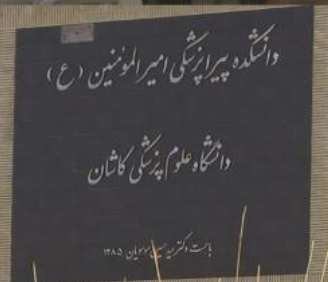 دانشکده پیراپزشکی امیرالمؤمنین (ع)
دانشگاه علوم پزشکی کاشان
دکتر سید حسین موسویان ۱۳۸۵